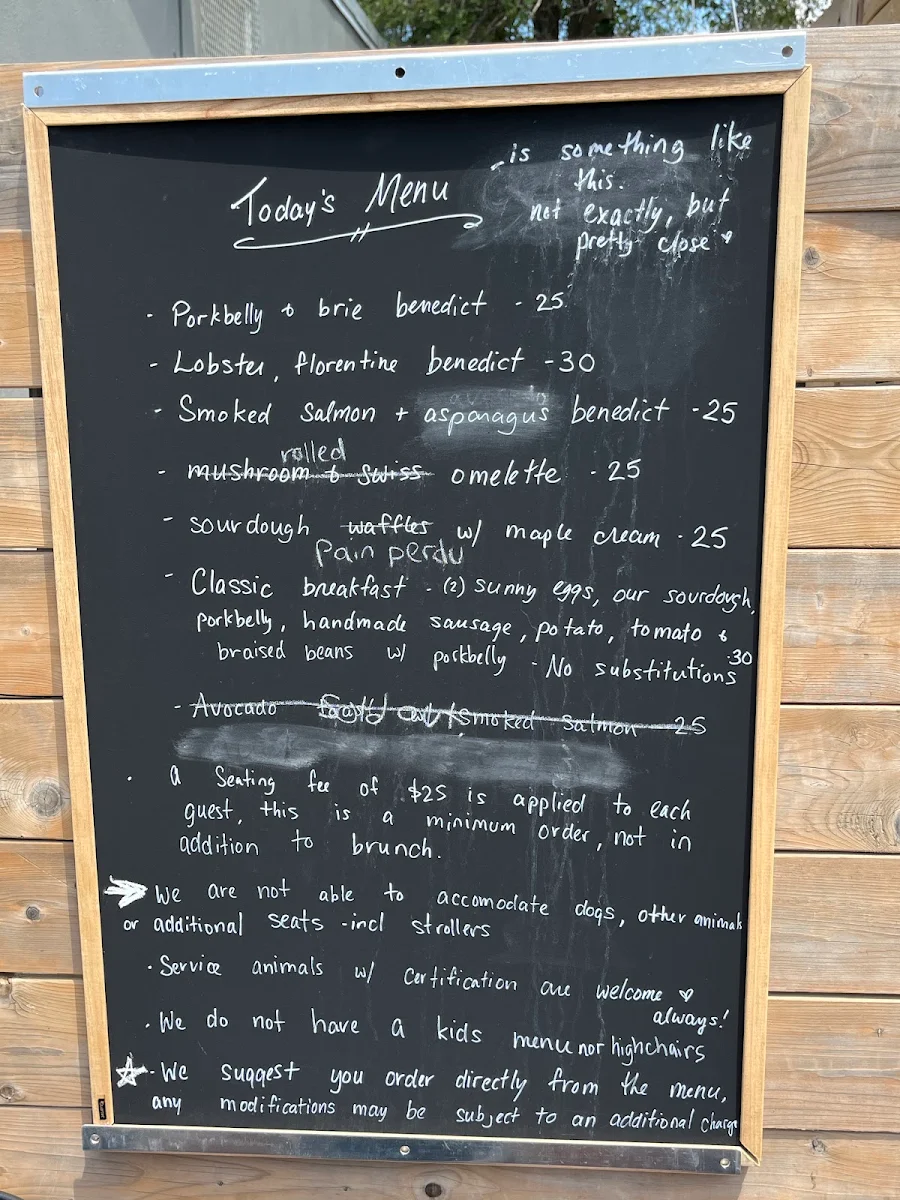 Today's Menu
is something like
this.
not exactly, but
pretty close
- Porkbelly & brie benedict - 25
- Lobster, florentine benedict - 30
- Smoked Salmon + asparagus benedict - 25
rolled
- mushroom & swiss omelette - 25
- sourdough waffles w/ maple cream - 25
Pain perdu
- Classic breakfast - (2) sunny eggs, our sourdough,
porkbelly, handmade sausage, potato, tomato &
braised beans w/ porkbelly - No substitutions 30
- Avocado Smoked Salmon 25
· a Seating fee of $25 is applied to each
guest, this is a minimum order, not in
addition to brunch.
We are not able to accomodate dogs, other animals
or additional seats - incl strollers
· Service animals w/ certification are welcome
always!
· We do not have a kids menu nor highchairs
- We suggest you order directly from the menu,
any modifications may be subject to an additional charge